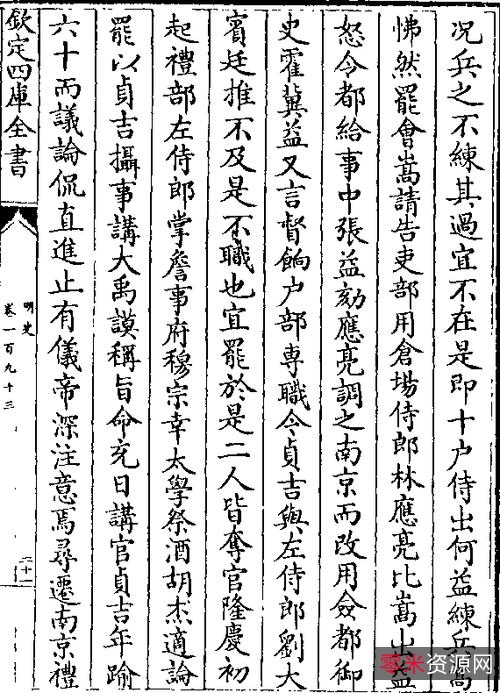 况兵之不練其過宜不在是即十户侍出何益練兵嵩
怫然罷會嵩請告吏部用倉場侍郎林應亮比嵩出益
怒令都給事中張益劾應亮調之南京而改用僉都御
史霍冀益又言督餉户部專職今貞吉與左侍郎劉大
賓廷推不及是不職也宜罷於是二人皆奪官隆慶初
起禮部左侍郎掌詹事府穆宗幸太學祭酒胡杰適論
罷以貞吉攝事講大禹謨稱旨命充日講官貞吉年踰
六十而議論侃直進止有儀帝深注意焉尋遷南京禮
欽定四庫全書
明史
卷一百九十三
二十一
零米资源网